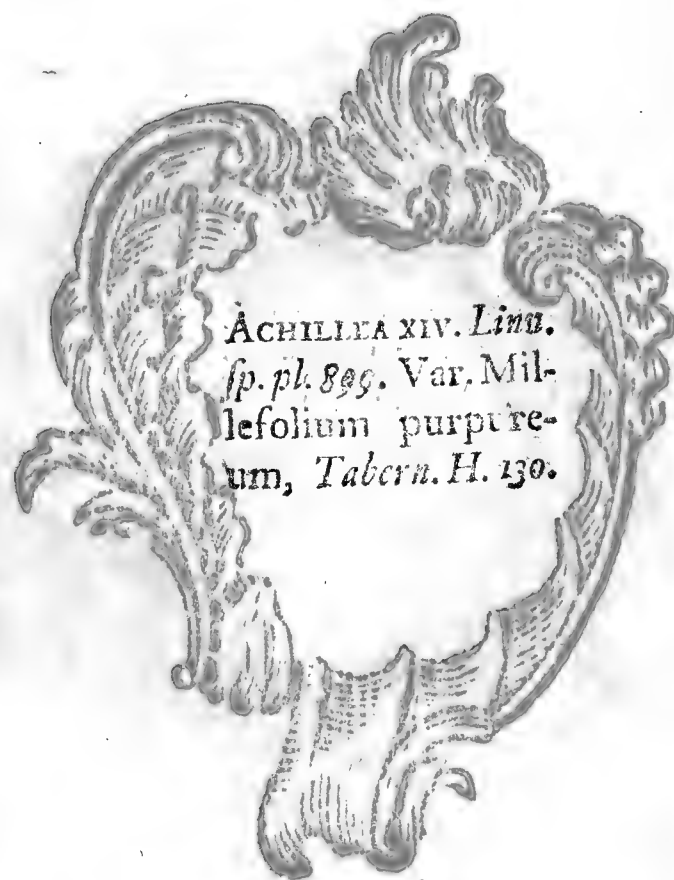 ACHILLEA XIV. Linn.
ſp. pl. 899. Var. Mil-
lefolium purpure-
um, Tabern. H. 130.